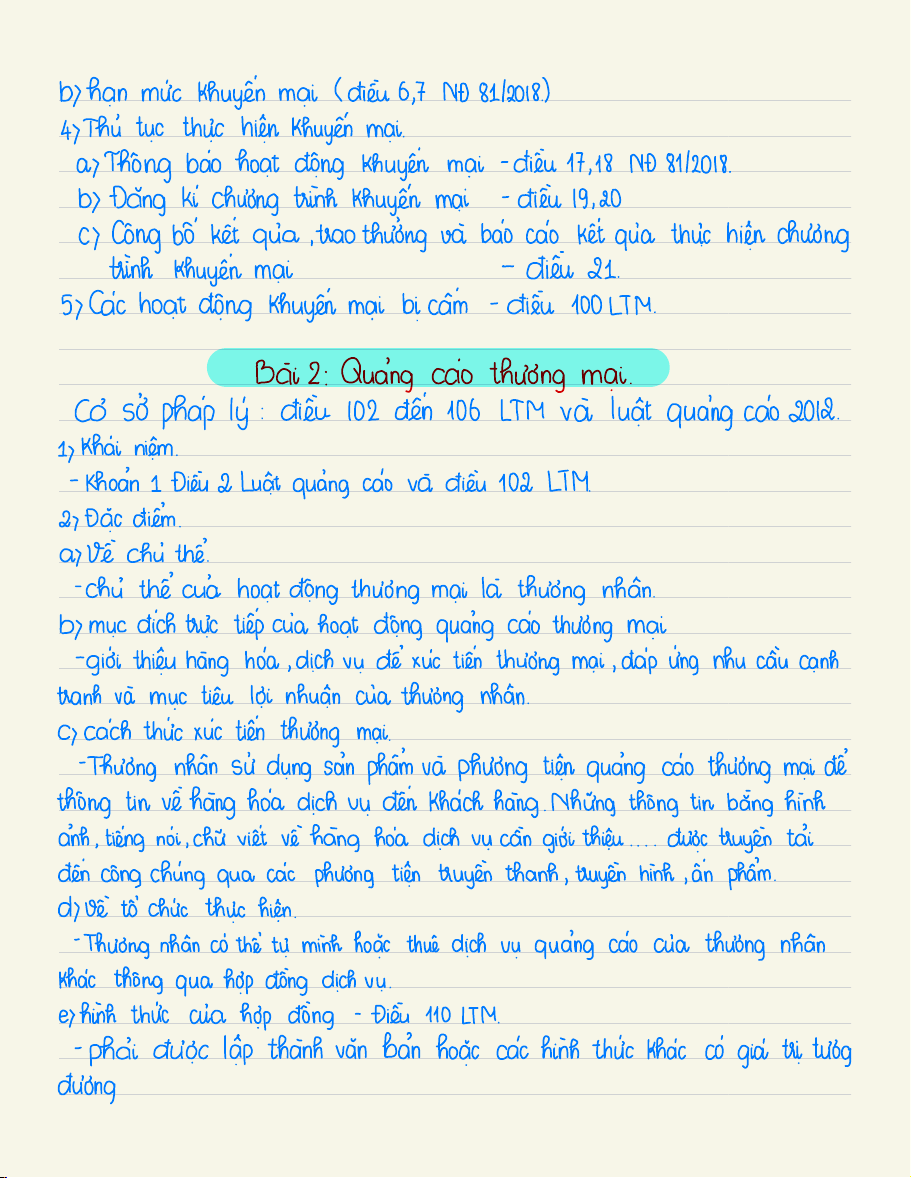 b) hạn mức khuyến mại (điều 6,7 NĐ 81/2018)
4) Thủ tục thực hiện khuyến mại.
a) Thông báo hoạt động khuyến mại - điều 17,18 NĐ 81/2018.
b) Đăng kí chương trình khuyến mại - điều 19,20
c) Công bố kết qủa, trao thưởng và báo cáo kết qủa thực hiện chương
trình khuyến mại - điều 21.
5) Các hoạt động khuyến mại bị cấm - điều 100 LTM.
Bài 2: Quảng cáo thương mại.
Cơ sở pháp lý : điều 102 đến 106 LTM và luật quảng cáo 2012.
1) Khái niệm.
- Khoản 1 Điều 2 Luật quảng cáo và điều 102 LTM
2) Đặc điểm.
a) Về chủ thể.
- chủ thể của hoạt động thương mại là thương nhân.
b) mục đích trực tiếp của hoạt động quảng cáo thương mại
- giới thiệu hàng hóa, dịch vụ để xúc tiến thương mại, đáp ứng nhu cầu cạnh
tranh và mục tiêu lợi nhuận của thương nhân.
c) cách thức xúc tiến thương mại.
- Thương nhân sử dụng sản phẩm và phương tiện quảng cáo thương mại để
thông tin về hàng hóa dịch vụ đến khách hàng. Những thông tin bằng hình
ảnh, tiếng nói, chữ viết về hàng hóa dịch vụ cần giới thiệu.... được truyền tải
đến công chúng qua các phương tiện truyền thanh, truyền hình, ấn phẩm.
d) về tổ chức thực hiện.
- Thương nhân có thể tự mình hoặc thuê dịch vụ quảng cáo của thương nhân
khác thông qua hợp đồng dịch vụ.
e) hình thức của hợp đồng - Điều 110 LTM.
- phải được lập thành văn bản hoặc các hình thức khác có giá trị tưòg
đương